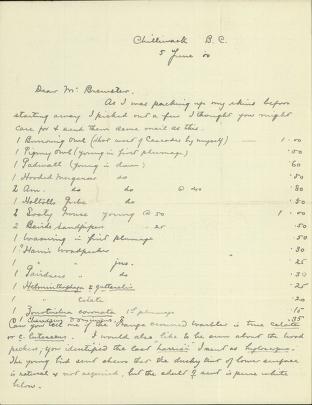 Chilliwack B.C.
5 June 00
Dear Mr Brewster,
As I was packing up my skins before
starting away I picked out a few I thought you might
care for & send them same mail as this.
1 Burrowing Owl (shot west of Cascades by myself) — 1.00
1 Pigmy Owl (young in first plumage) .50
1 Gadwall (young in down) .60
1 Hooded Merganser do .50
2 Am. do do @ 40 .80
1 Holboells Grebe do .50
2 Sooty Grouse young @ 50 1.00
2 Bairds Sandpipers - 25 .50
1 Waxwing in first plumage .50
1 Harris Woodpecker .30
1 " juv. .25
1 Gairdners " do .30
1 Helminthophaga .25
1 " celata .20
1 Zonotrichia coronata 1st plumage .15
1 .35
Can you tell me if the Orange crowned warbler is true celata
or c. lutescens. I would also like to be sure about the wood
peckers, you identified the last "harrisi" I sent as
The young bird sent shows that the dusky tint of lower surface
is natural & not acquired, but the adult sent is pure white
below.